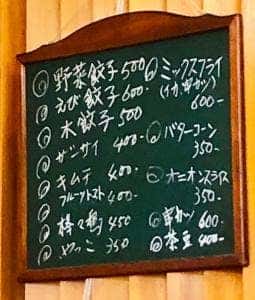 野菜餃子 500
えび餃子 600-
水餃子 500
サンサイ 400-
キムチ 400-
フルーツトマト 400-
棒々鶏 450
やっこ 350
ミックスフライ
600-
バターコーン
350-
オニオンスライス
350-
串カツ 600-
茶豆 400-